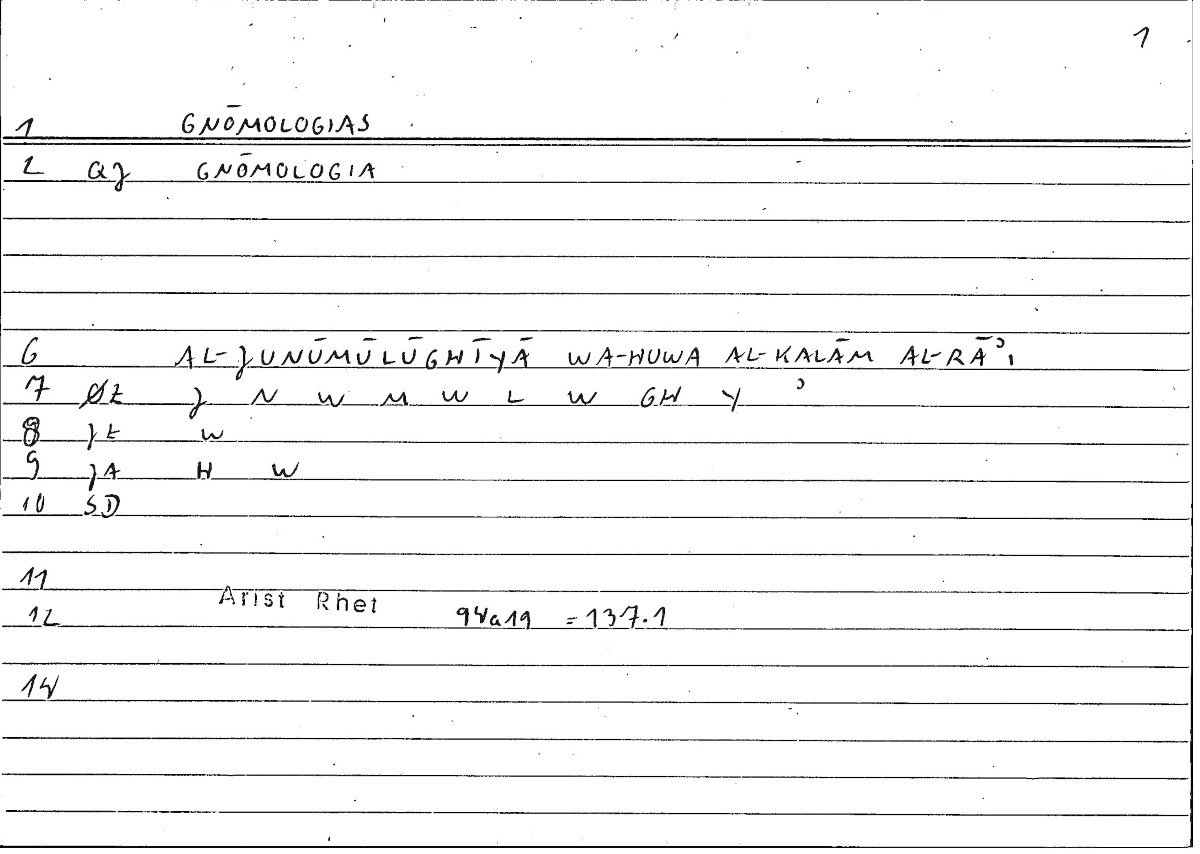 1
1 GNŌMOLOGIAS
2 QJ GNŌMOLOGIA
6 AL-JUNŪMŪLŪGHĪYĀ WA-HUWA AL-KALĀM AL-RĀʾI
7 ØE J N W M W L W GH Y ʾ
8 JE W
9 JA H W
10 SD
11
Arist Rhet
12 94a19 = 137.1
14